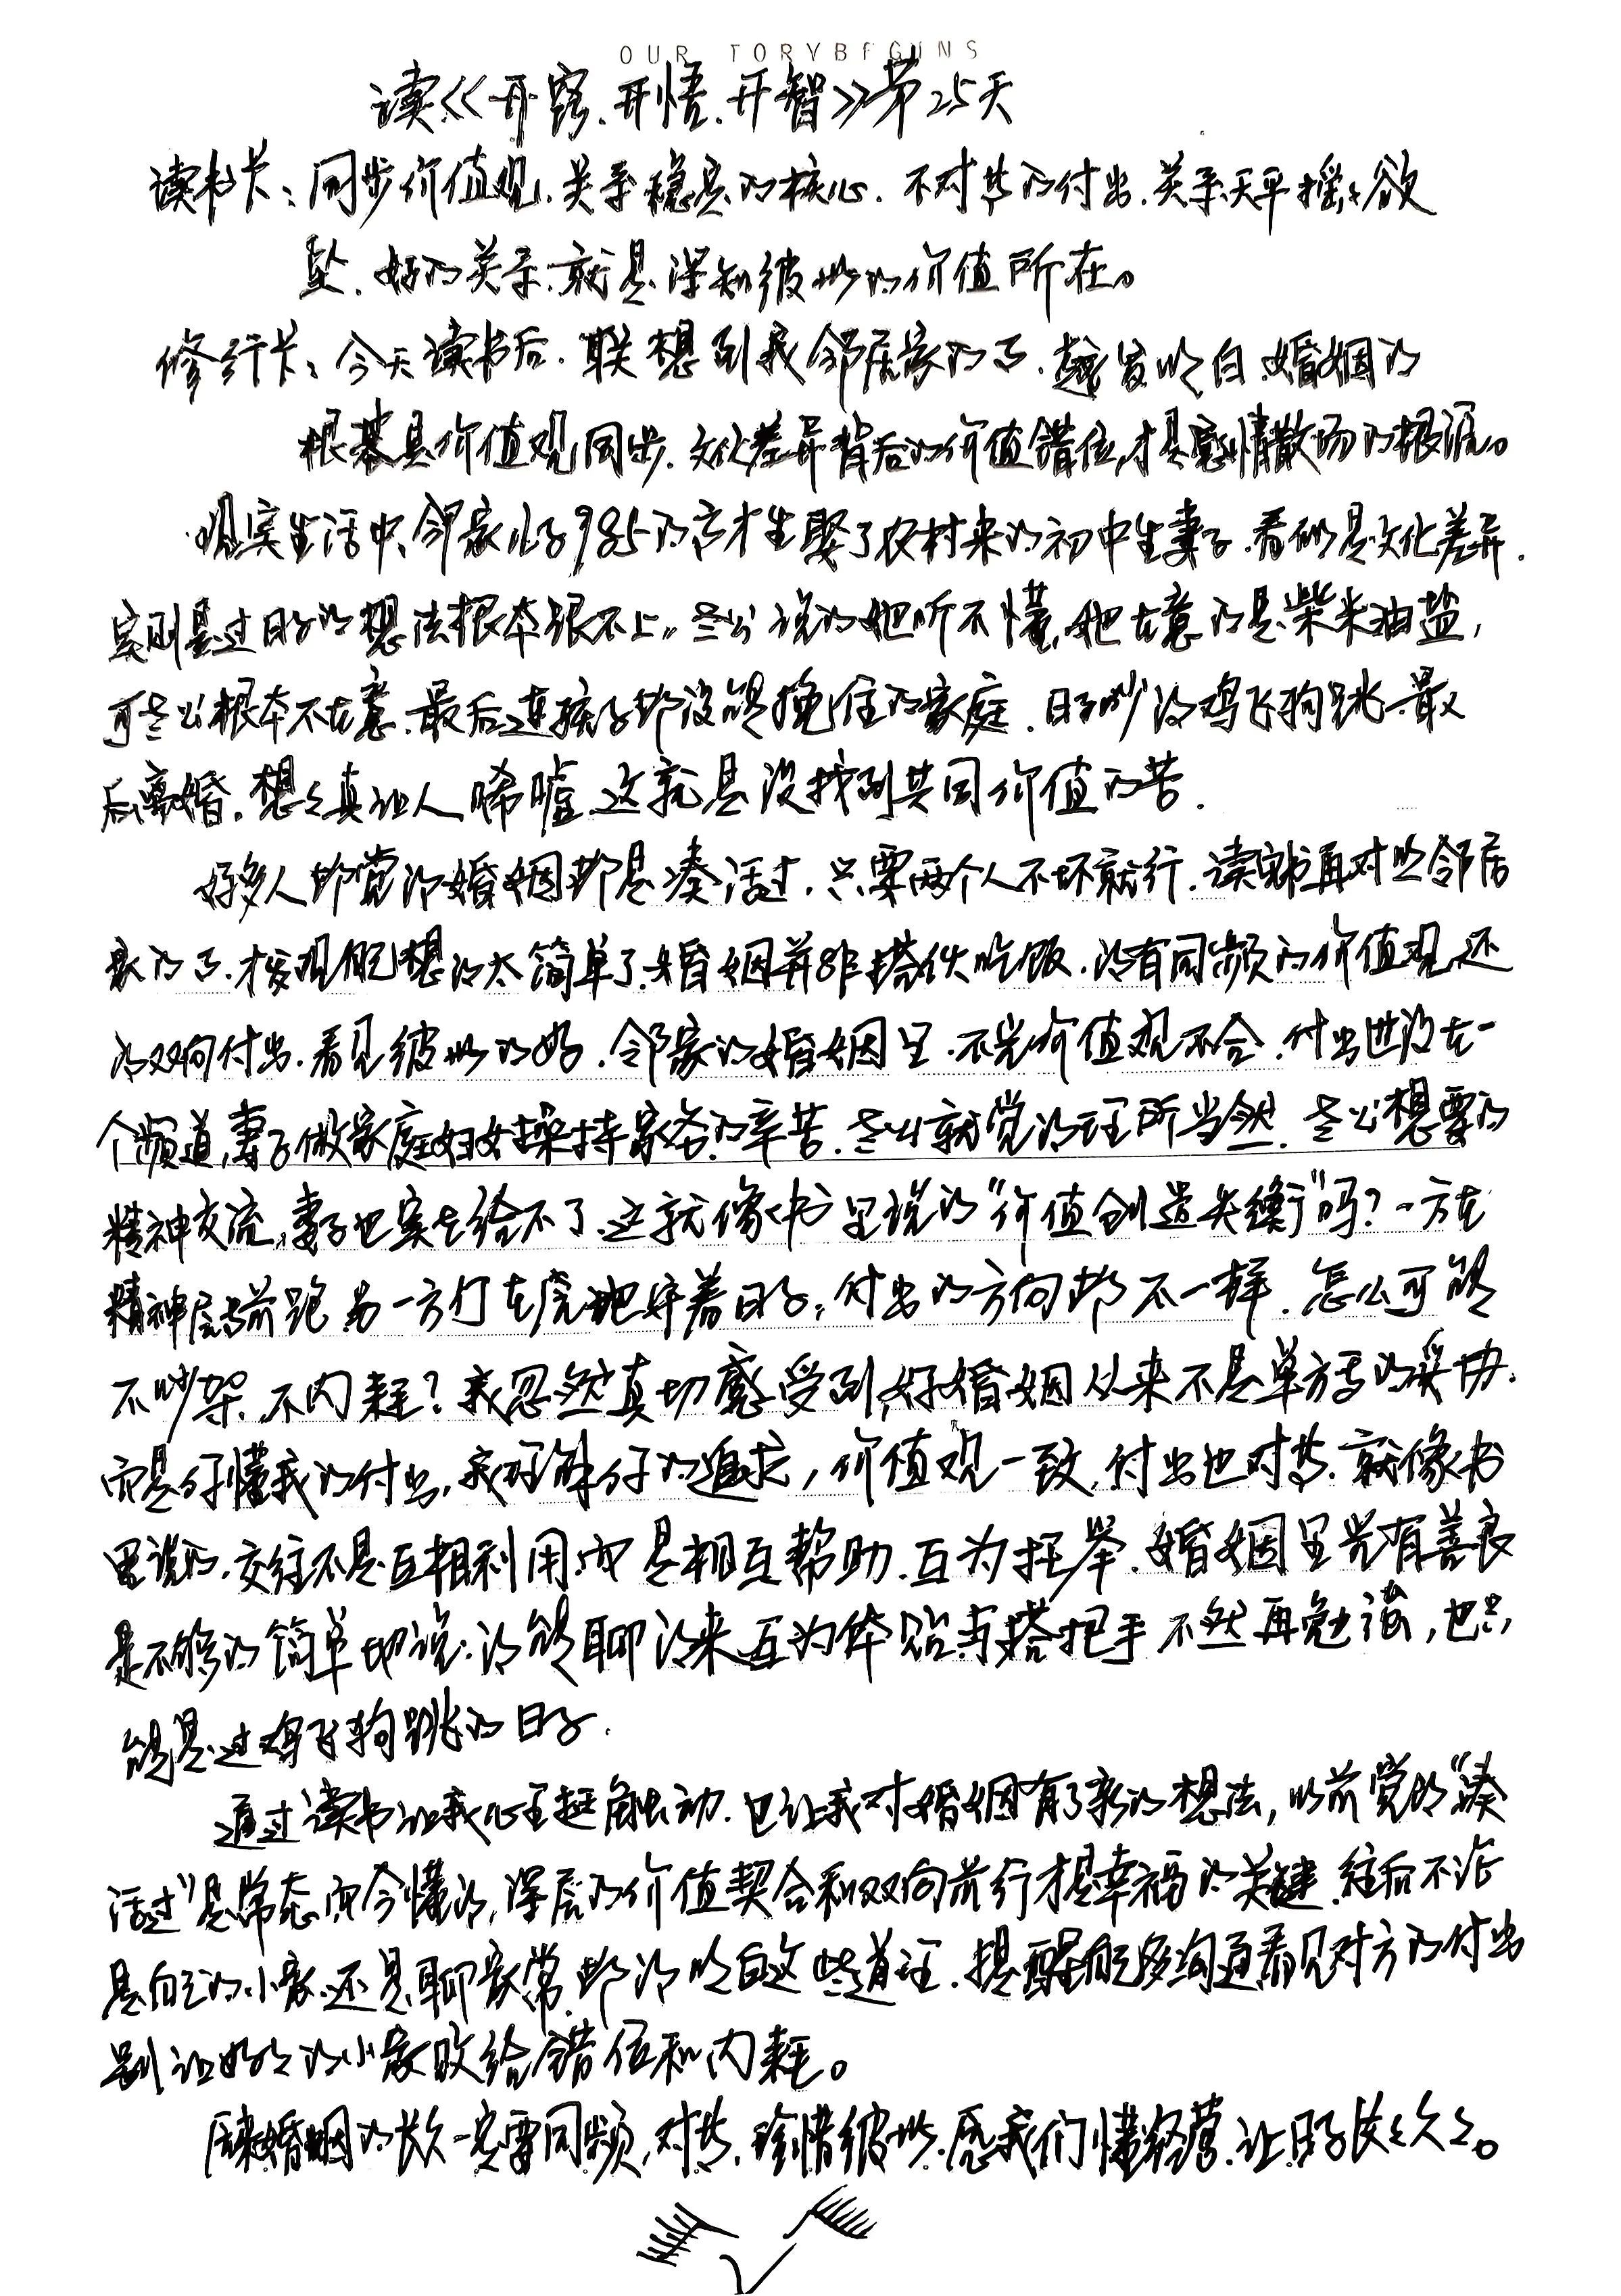 OUR TORYBEGUNS
读《开窍.开悟.开智》第25天
读书卡：同步价值观.关系稳定的核心.不对等的付出.关系天平摇摇欲
坠.好的关系.就是深知彼此的价值所在。
修行卡：今天读书后.联想到我邻居家的事.越发明白.婚姻的
根基是价值观同步.文化差异背后的价值错位,才是感情散场的根源。
现实生活中、邻家儿子985的高才生娶了农村来的初中生妻子.看似是文化差异.
实则是过日子的想法根本跟不上。老公说的她听不懂,她在意的是柴米油盐,
可老公根本不在意.最后连孩子都没能挽住的家庭.日子吵得鸡飞狗跳.最
后离婚.想想真让人唏嘘.这就是没找到共同价值的苦.
好多人都觉得婚姻都是凑活过.只要两个人不坏就行.读完书再对照邻居
家的事.才发现自己想的太简单了.婚姻并非搭伙吃饭.得有同频的价值观.还
得双向付出.看见彼此的好.邻家的婚姻里.不光价值观不合.付出也没在一
个频道,妻子做家庭妇女操持家务的辛苦.老公就觉得理所当然.老公想要的
精神交流,妻子也实在给不了.这就像书里说的“价值创造失衡”吗?一方在
精神层与前跑.另一方们在原地守着日子,付出的方向都不一样.怎么可能
不吵架.不内耗?我忽然真切感受到,好婚姻从来不是单方面的妥协.
而是你懂我的付出,我理解你的追求,价值观一致,付出也对等.就像书
里说的.交往不是互相利用,而是相互帮助.互为托举.婚姻里光有善良
是不够的.简单地说.得能聊得来.互为体贴与搭把手.不然再勉强,也只
能是过鸡飞狗跳的日子.
通过读书让我心里挺触动.也让我对婚姻有了新的想法,以前觉的“凑
活过”是常态,而今懂得,深层的价值契合和双向前行才是幸福的关键.往后不论
是自己的小家.还是聊家常.都得明白这些道理.提醒自己多沟通看见对方的付出
别让好好的小家败给错位和内耗。
原来婚姻的长久一定要同频.对等.珍惜彼此.愿我们懂经营.让日子长长久久。